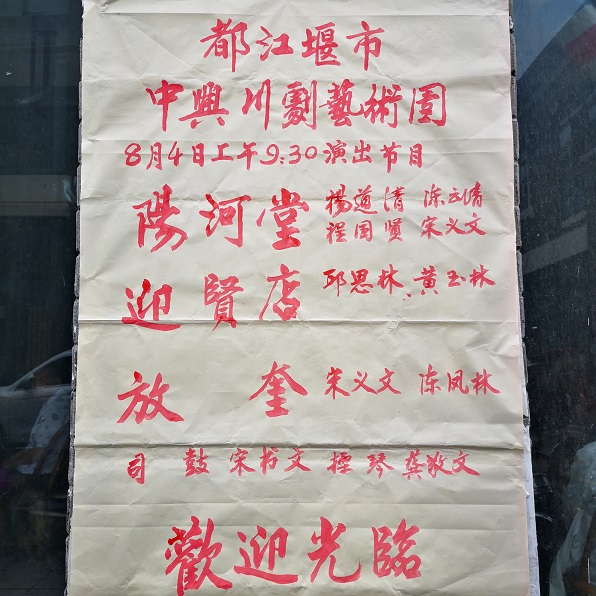 都江堰市
中興川劇藝術团
8月4日上午9:30演出节目
陽河堂 楊道清 陈云清
程国贤 宋义文
迎賢店 邱思林、黄玉林
放奎 宋义文 陈凤林
司鼓 宋书文 操琴 龚敬文
歡迎光臨